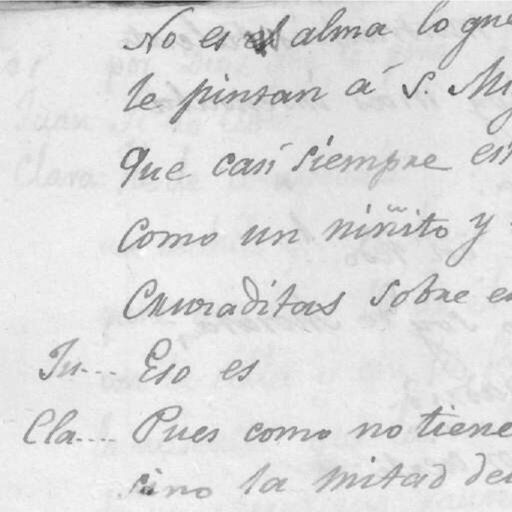 No es el alma lo que
le pintan á S. Mi
que casi siempre es
como un niñito y
Cruraditas sobre e
Ju... Eso es
Cla.... Pues como no tiene
sino la mitad de